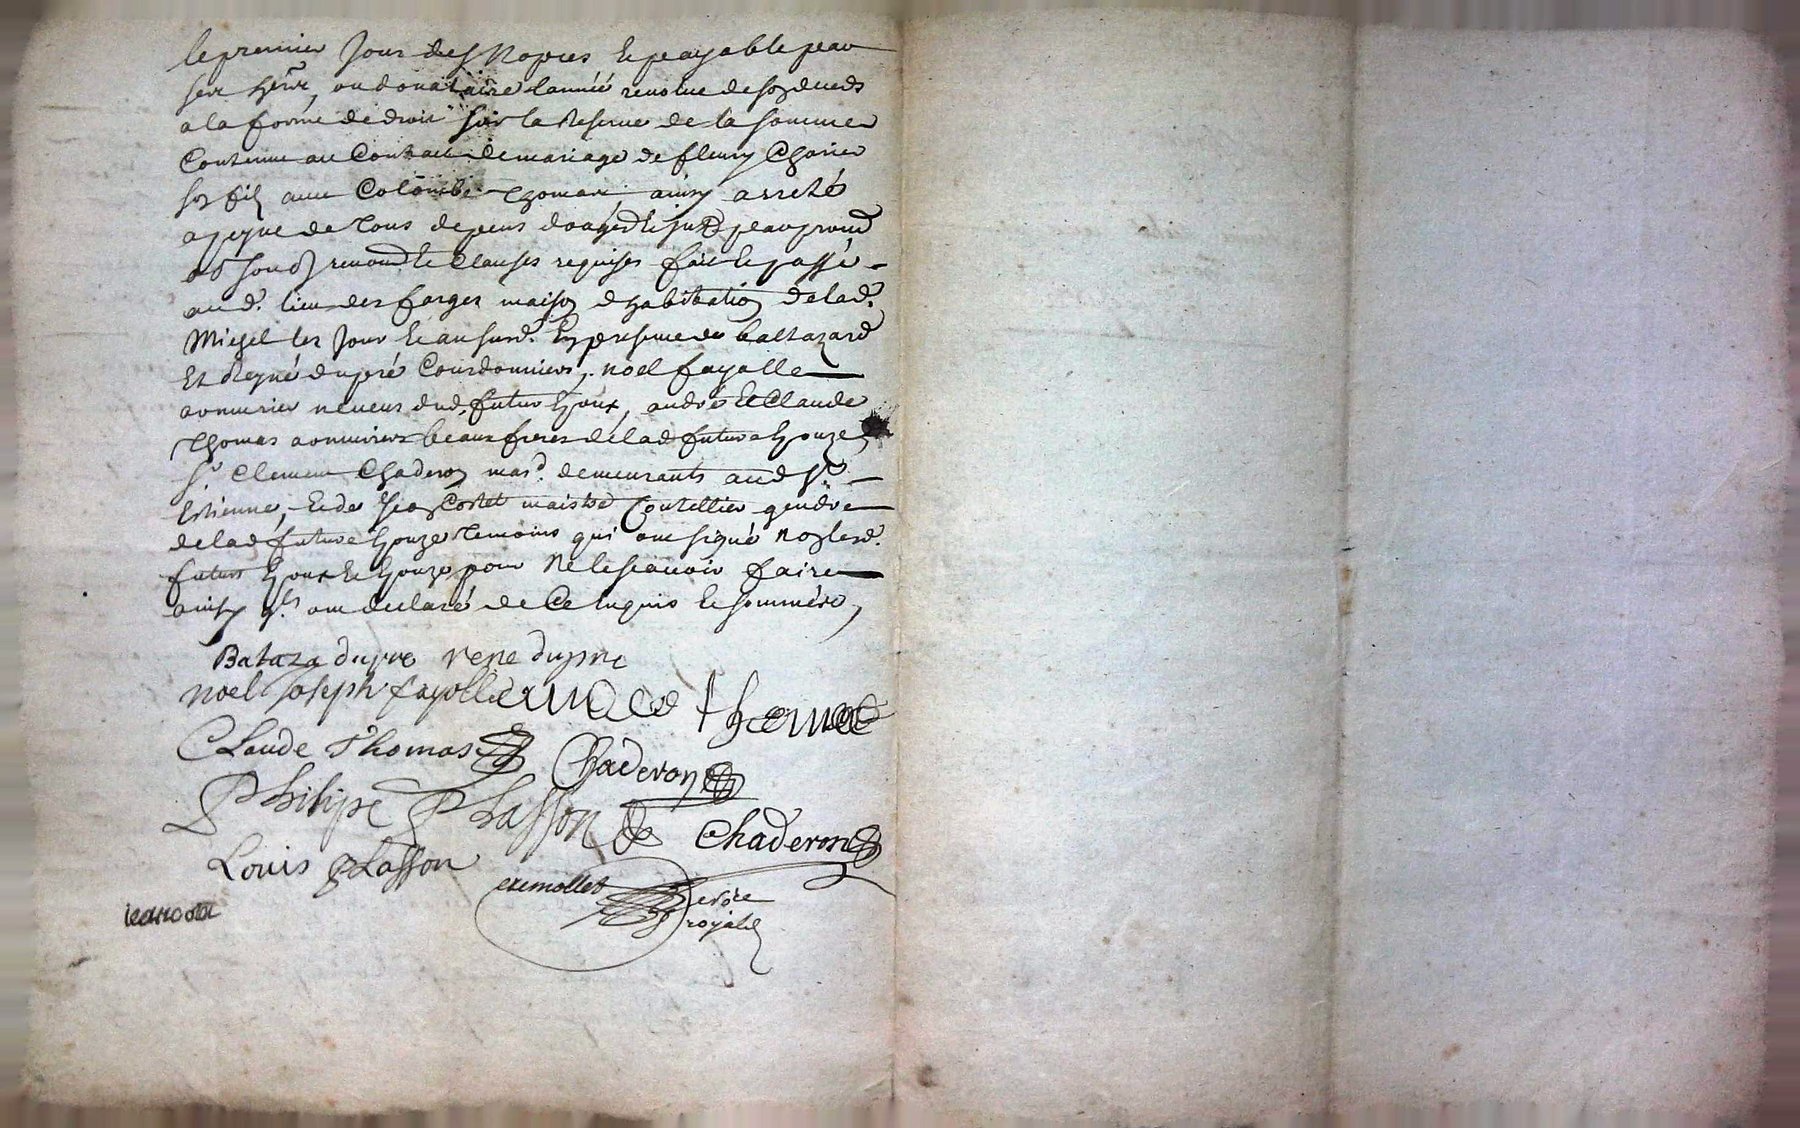 le premier Jour des Nopces & payable par
ses hers, ou donataire l'année revolue de son deceds
a la forme de droit sur la Reserve de la somme
Contenue au Contract de mariage de fleury
son fils avec Colombe Thomas, ainsy arreté
a peyne de tous depens
renond & Clauses requises fait & passé
aud. lieu des forges maison d'habitation de lad.
Miesel les Jour & an susd. En presence de baltazard
Et Regné dupré Courdonniers, noel fayolle
armurier neveux dud. futur Epoux, andré & Claude
Thomas armuriers beaux freres de lad future Epouze,
Sr. Clement Chaderon mard. demeurants aud St.
Estienne, & de Jean Costet maistre Coutellier gendre
de lad future Epouze temoins qui ont signé non lesd.
futurs Epoux & Epouze pour Ne le scavoir faire
ainsy qls ont declaré de Ce Enquis & sommés,
Bataza dupre rene dupre
noel Joseph fayolle andre thomas
Claude Thomas Chaderon
Philipe Plasson Chaderon
Louis Plasson
exemollet nre royal